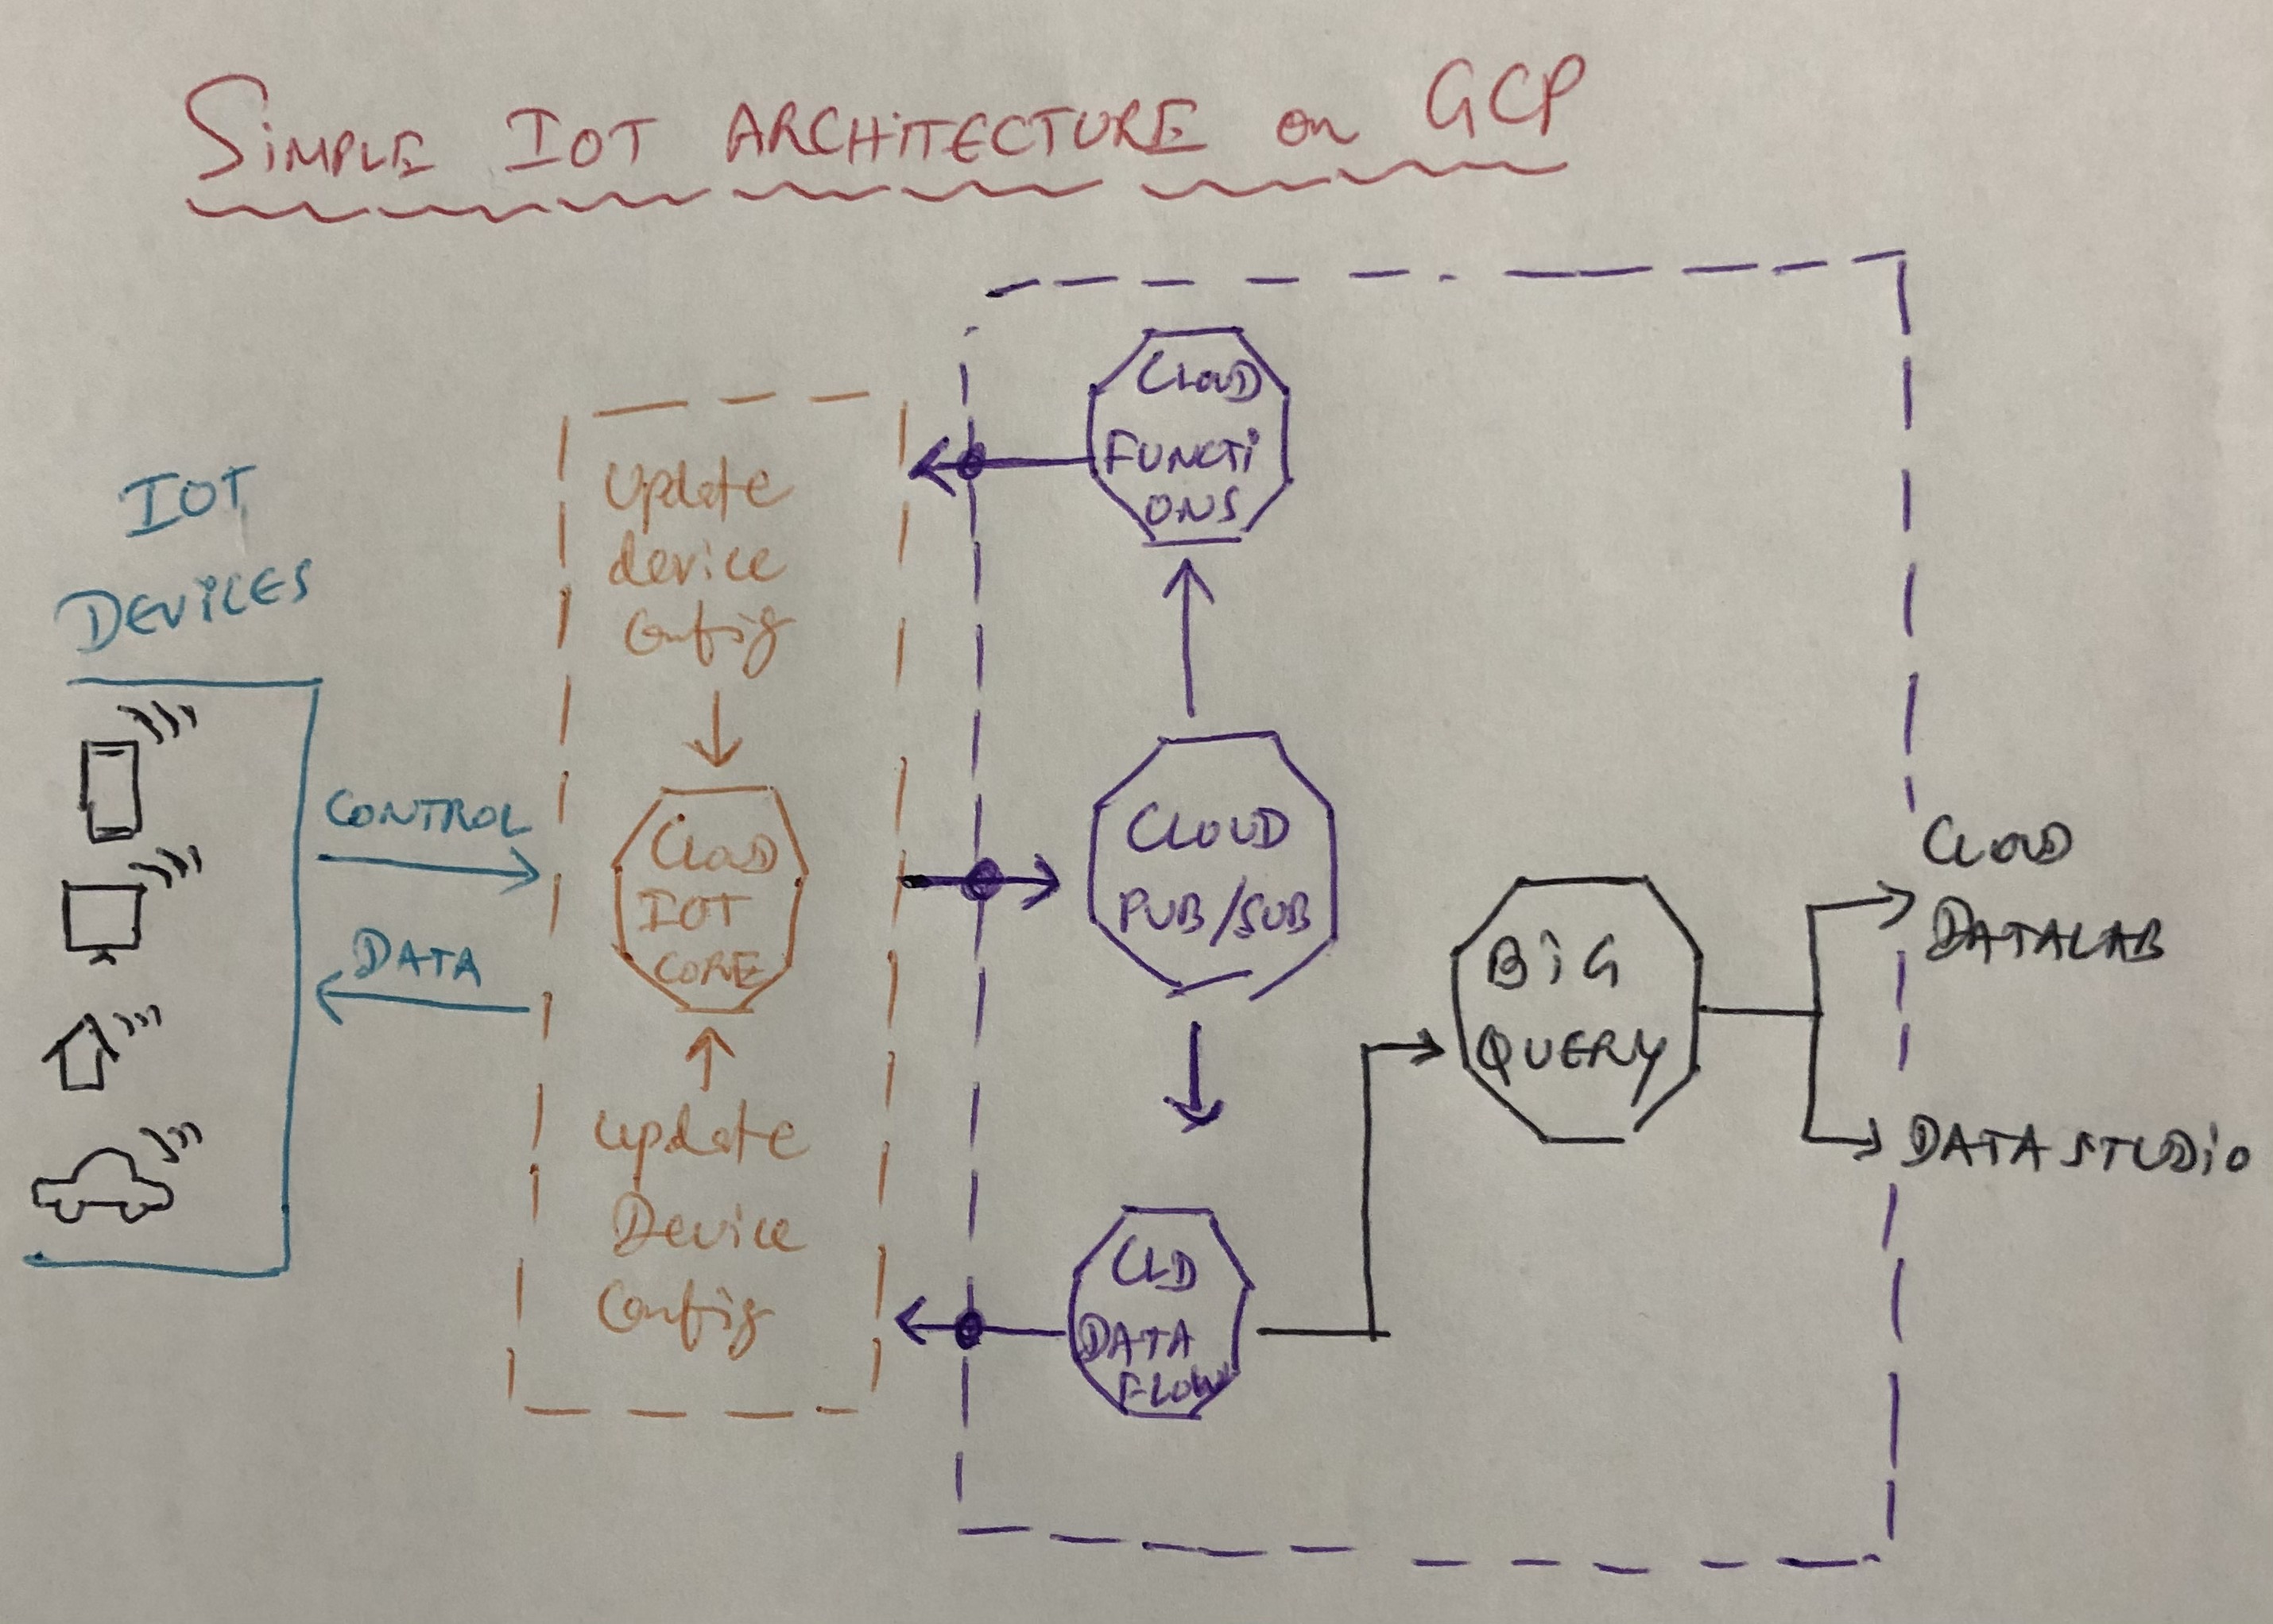 SiMPLE IOT ARCHiTECTURE on GCP
IOT
DEViCES
CONTROL
DATA
Update
device
Config
CLOUD
IOT
CORE
Update
Device
Config
CLOUD
FUNCTi
ONS
CLOUD
PUB/SUB
CLD
DATA
FLOW
BiG
QUERY
CLOUD
DATALAB
DATA STUDiO